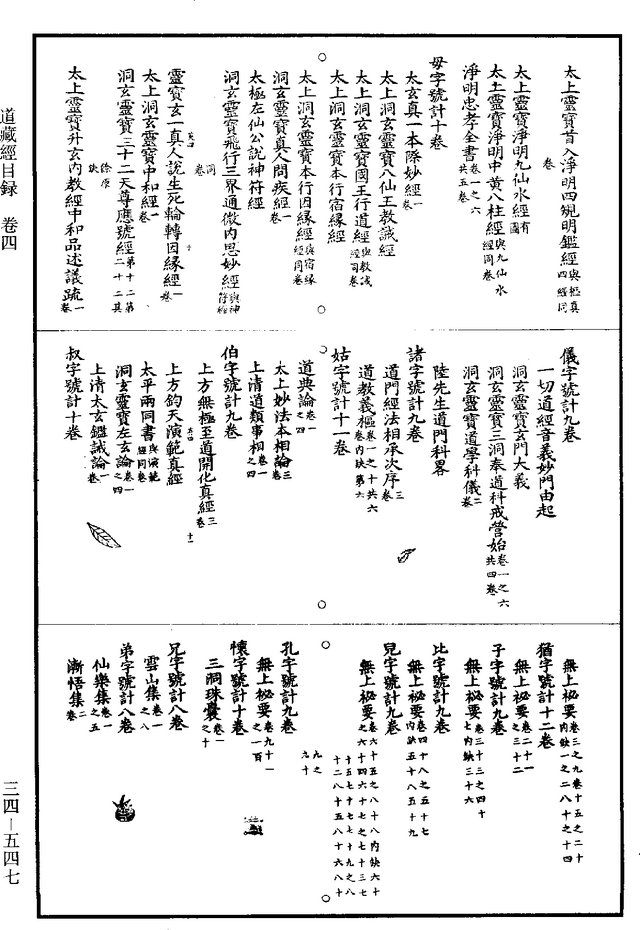 太上靈寶首入淨明四規明鑑經與極真四經同卷
太上靈寶淨明九仙水經有圖
太上靈寶淨明中黃八柱經與九仙水經同卷
淨明忠孝全書卷一之六共五卷
母字號計十卷
太玄真一本際妙經卷一
太上洞玄靈寶八仙王教誡經
太上洞玄靈寶國王行道經與教誡經同卷
太上洞玄靈寶本行宿緣經
太上洞玄靈寶本行因緣經與宿緣經同卷
洞玄靈寶真人問疾經卷一
太極左仙公說神符經
洞玄靈寶飛行三界通微內思妙經與神符經同卷
靈寶玄一真人說生死輪轉因緣經一卷
太上洞玄靈寶中和經卷一
洞玄靈寶三十二天尊應號經
太上靈寶升玄內教經中和品述議疏一卷
儀字號計九卷
一切道經音義妙門由起
洞玄靈寶玄門大義
洞玄靈寶三洞奉道科戒營始卷一之六共四卷
洞玄靈寶道學科儀二卷
陸先生道門科畧
諸字號計九卷
道門經法相承次序三卷
道教義樞卷一之十共六卷內缺第六
姑字號計十一卷
道典論卷一之四
太上妙法本相論三卷
上清道類事相卷一之四
伯字號計九卷
上方無極至道開化真經三卷
上方鈞天演範真經
太平兩同書與演範經同卷
洞玄靈寶左玄論卷一之四
上清太玄鑑誡論一卷
叔字號計十卷
猶字號計十二卷
無上祕要卷二十一之三十二
子字號計九卷
無上祕要卷三十三之四十七內缺三十六
比字號計九卷
無上祕要卷四十八之五十七內缺五十八五十九
兒字號計九卷
孔字號計九卷
無上祕要卷九十一之一百
懷字號計十卷
三洞珠囊卷一之十
兄字號計八卷
雲山集卷一之八
弟字號計八卷
仙樂集卷一之五
漸悟集卷二
道藏經目録　卷四
三四—五四七